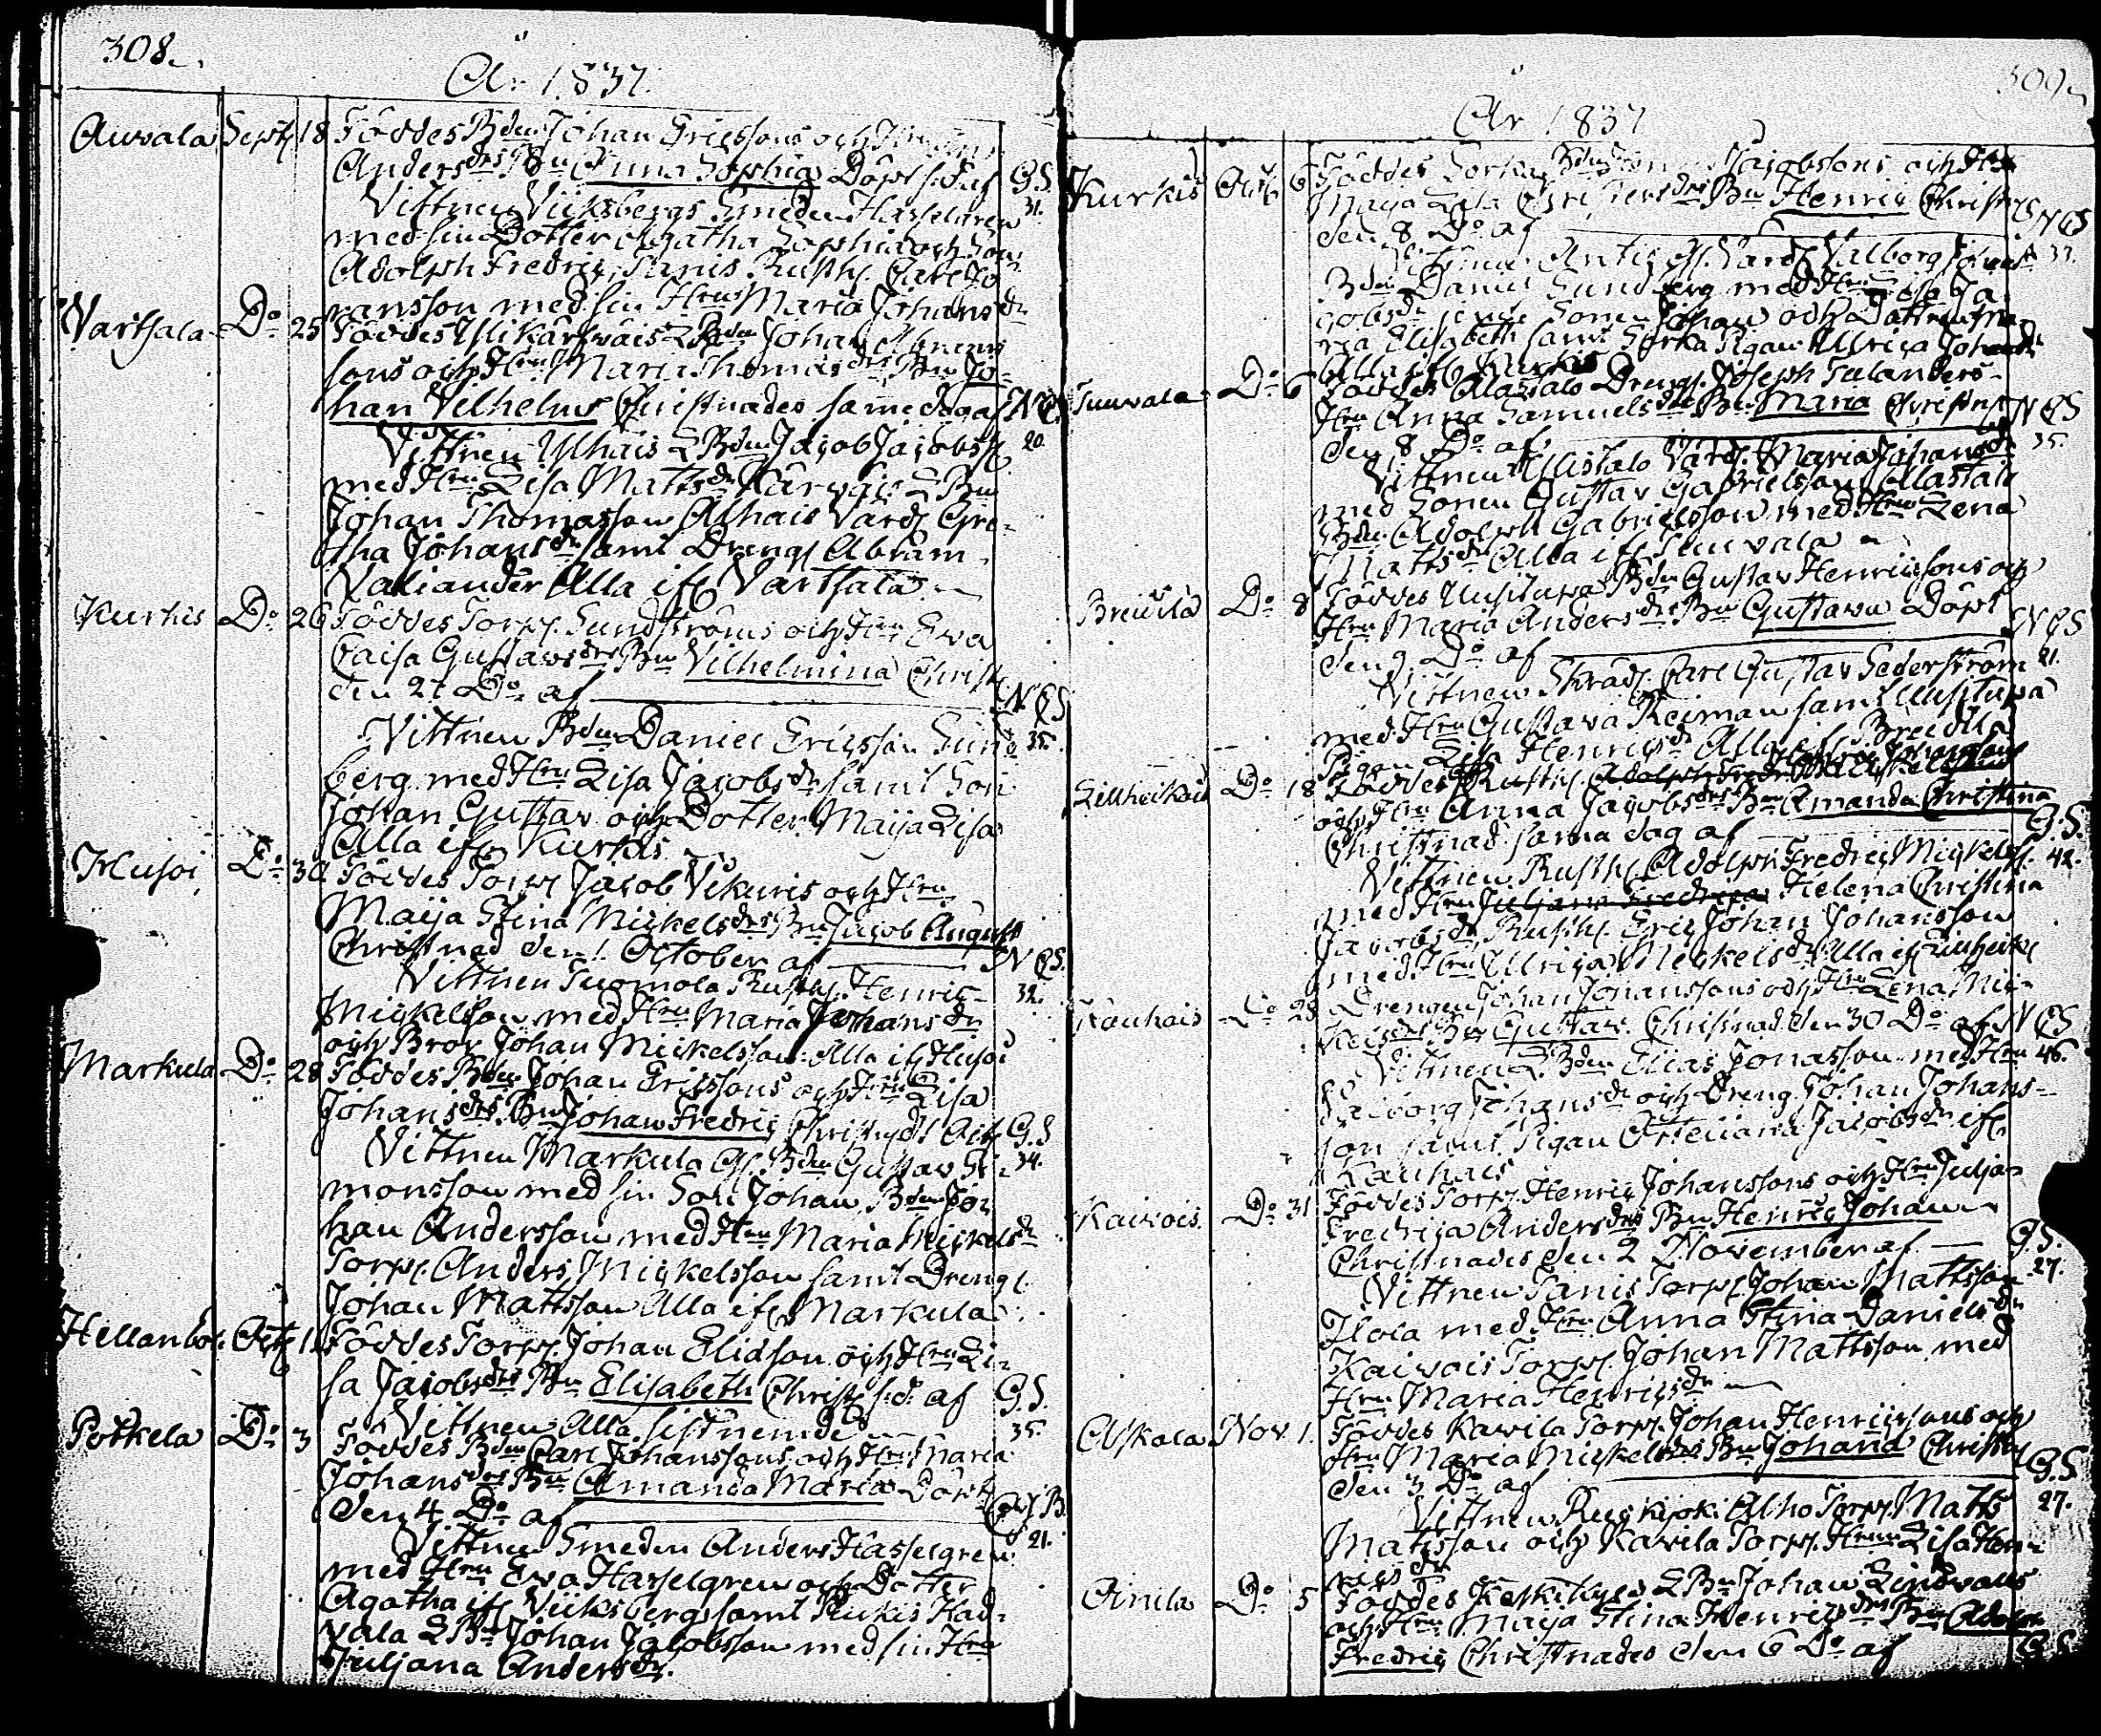 308.
År 1837.
Auvala Sept 18 Föddes Bden Johan Ericssons och Hru
Andersdrs Bn Anna Sophia Döpt s. d. af G.S.
Vittnen Vicksbergs Smeden Hasselgren 31.
med sin Dotter Agatha Sophia och Son
Adolph Fredric, Tanis Rusth. Carl Jo
hansson med sin Hru Maria Johansdr
Vartsala Do 25 Föddes Ylikärhväis LBden Johan Abrams
sons och Hru Maria Thomasdrs Bn Jo-
han Vilhelm Christnades samme dag af N CS
Vittnen Ylhäis LBden Jacob Jacobss. 20.
med Hru Lisa Mattsdr LBn
Johan Thomasson Alhais Värd. Gre-
tha Johansdr samt Dreng. Abram
Valiander Alla ifr. Vartsala
Kurkis Do 26 Föddes Torp. Sundströms och Hru Ewa
Caisa Gustavsdrs Bn Vilhelmina Christ.
den 27 Do af N CS
Vittnen Bden Daniel Ericsson Sund 35.
berg med Hru Lisa Jacobsdr samt Son
Johan Gustav och Dotter Maija Lisa
Alla ifr. Kurkis
Husoi Do 30 Föddes Torp. Jacob Vikuris och Hru
Maija Stina Mickelsdrs Bn Jacob August
Christnad den 1. October af N CS.
Vittnen Tuomola Rusth. Henric 32.
Mickelsson med Hru Maria Johansdr
och Bror Johan Mickelsson Alla ifr. Husoi
Markula Do 28 Föddes Bden Johan Ericssons och Hru Lisa
Johansdrs Bn Johan Fredric Christn. d. 1 Oct. G.S
Vittnen Markula Gl. Bden Gustav Si- 34.
monsson med sin Son Johan, Bden Jo-
han Andersson med Hru Maria Mickelsdr
Torp. Anders Mickelsson samt Dreng.
Johan Mattsson Alla ifr. Markula
Hellanbö. Oct. 1 Föddes Torp. Johan Eliasson och Hru Li-
sa Jacobsdrs Bn Elisabeth Christ. s. d. af G.S.
Vittnen Alla sistnemde 35.
Potkela Do 3 Föddes Bden Carl Johanssons och Hru Maria
Johansdrs Bn Amanda Maria Döpt
den 4 Do af
Vittnen Smeden Anders Hasselgren 21.
med Hru Ewa Hasselgren och Dotter
Agatha ifr. Vicksberg samt
vala LBn Johan Jacobsson med sin Hru
Juljana Andersdr.
309.
År 1837
Kurkis Oct. 6 Föddes Jacobssons och Hru
Maija Lisa Christersdrs Bn Henric Christn. N CS
den 8 Do af
Antis Gl. Värd. Valborg 33.
Bden Daniel Sundberg med Hru Lisa Ja-
cobsdr Sonen Johan och Dottren Ma-
ria Elisabeth samt Pigan Ulrica Johansdr
Alla ifr. Kurkis
Tuuvala Do 6 Föddes Alastalo Dreng. Joseph Talanders
Hru Anna Samuelsdrs Bn Maria Christn. N CS
den 8 Do af 35.
Vittnen Ylistalo Värd. Maria Johansdr
med Sonen Gustav Gabrielsson Alastalo
Bden Adolph Gabrielsson med Hru Lena
Mattsdr Alla ifr. Tuuvala
Breivila Do 8 Föddes Uusitupa Bden Gustav Henricssons och
Hru Maria Andersdrs Bn Gustava Döpt N CS
den 9 Do af 21.
Vittnen Skräd. Carl Gustav Sederström
med Hru Gustava Reiman samt Uusitupa
Pigan Lisa Henricsdr Alla ifr. Breivila
Do 18 Föddes Rusth.
och Hru Anna Jacobsdrs Bn Amanda Christina
Christnad samma dag af G.S.
Vittnen Rusth. Adolph Fredric Mickelss. 42.
med Hru Juljana Fredrica Helena Christina
Jacobsdr Rusth. Eric Johan Johansson
med Hru Ulrica Mickelsdr Alla ifr.
Kauhais Do 28 Drengen Johan Johanssons och Hru Lena Mic-
kelsdrs Bn Gustav. Christnad den 30 Do af N CS
Vittnen LBden Elias Jonasson med Hru 46.
Valborg Johansdr och Dreng Johan Johans-
son samt Pigan Jacobsdr ifr.
Kauhais
Kaivois Do 31 Föddes Torp. Henric Johanssons och Hru Julja
Fredrica Andersdrs Bn Henric Johan
Christnades den 2 November af G.S.
Vittnen Tanis Torp. Johan Mattsson 27.
Flola med Hru Anna Stina Danielsdr
Kaivois Torp. Johan Mattsson med
Hru Maria Henricsdr
Askala Nov. 1. Föddes Kavila Torp. Johan Henricssons och
Hru Maria Mickelsdrs Bn Johanna Christn.
den 3 Do af G.S.
Vittnen Alho Torp. Matts 27.
Mattsson och Kavila Torp. Hrun Lisa Hen-
ricsdr
Ainila Do 5 Föddes Keskikylä LBn Johan Lindvalls
och Hru Maija Stina Henricsdrs Bn Adolph
Fredric Christnades den 6 Do af G.S.